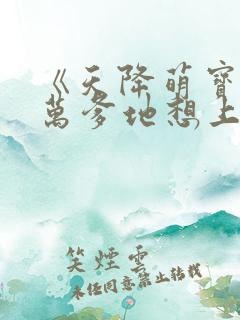 《天降萌寶
萬爹地想上
笑煙雲
未经同意禁止转载